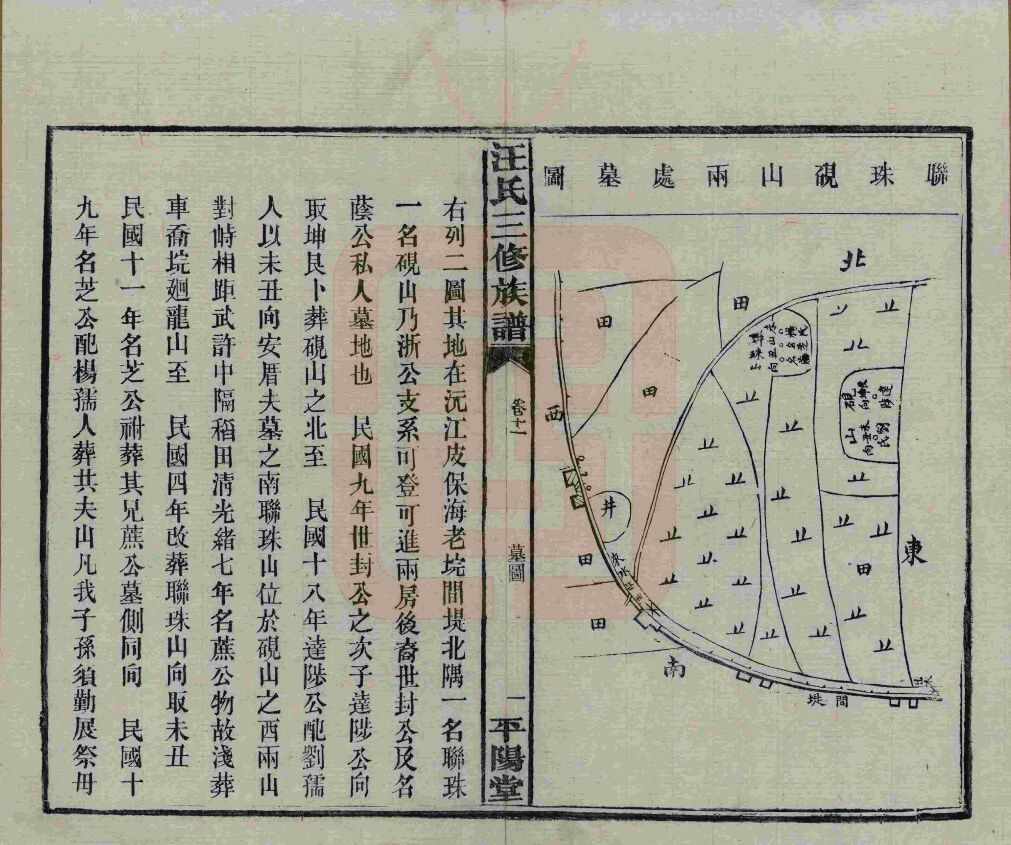 聯珠硯山兩處墓圖
北
東
南
西
田
田
田
井
田
田
田
間堤
硯山
汪氏三修族譜
卷十一
墓圖
一
平陽堂
右列二圖其地在沅江皮保海老垸間堤北隅一名聯珠
一名硯山乃浙公支系可登可進兩房後裔世封公及名
蔭公私人墓地也　民國九年世封公之次子達陟公向
取坤艮卜葬硯山之北至　民國十八年達陟公配劉孺
人以未丑向安厝夫墓之南聯珠山位於硯山之西兩山
對峙相距武許中隔稻田清光緒七年名蔗公物故淺葬
車喬垸廻龍山至　民國四年改葬聯珠山向取未丑
民國十一年名芝公祔葬其兄蔗公墓側同向　民國十
九年名芝公配楊孺人葬共夫山凡我子孫須勤展祭毋